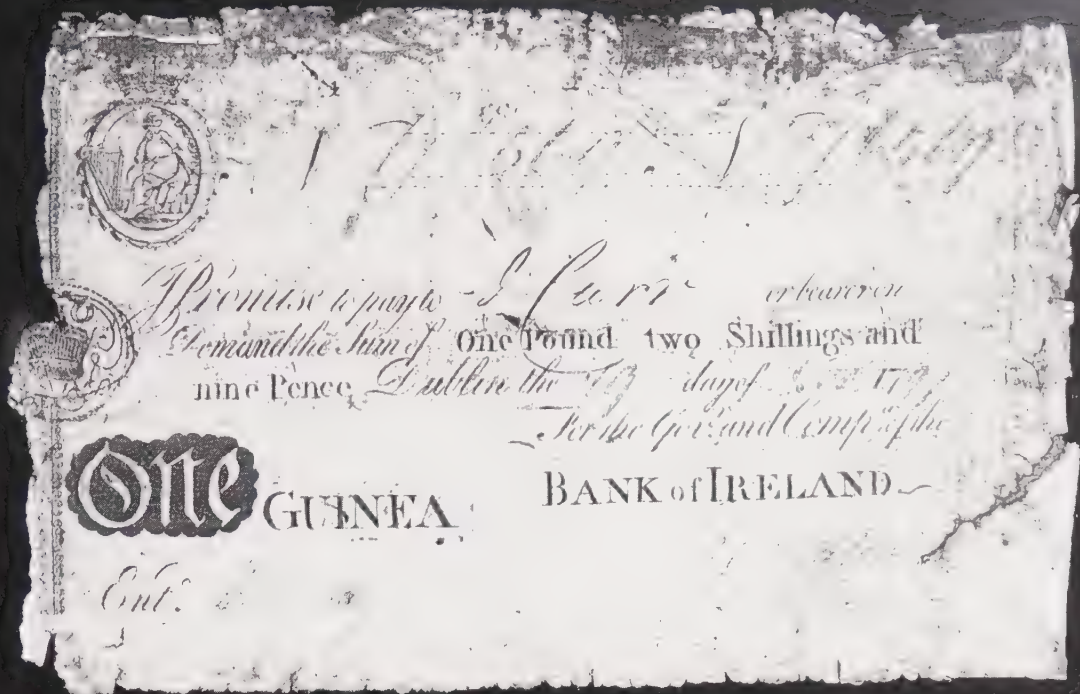 I Promise to pay to J. Curr or bearer on
Demand the Sum of One Pound two Shillings and
nine Pence Dublin the day of
For the Govr. and Compy. of the
BANK of IRELAND
One GUINEA
Entd.